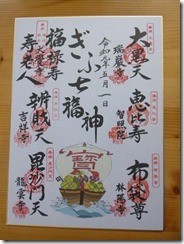 大黒天
瑞巌寺
恵比寿
智照院
布袋尊
林陽寺
令和元年五月一日
ぎふ七福神
寳
福禄寿
寿老人
辨財天
吉祥寺
毘沙門天
龍雲寺